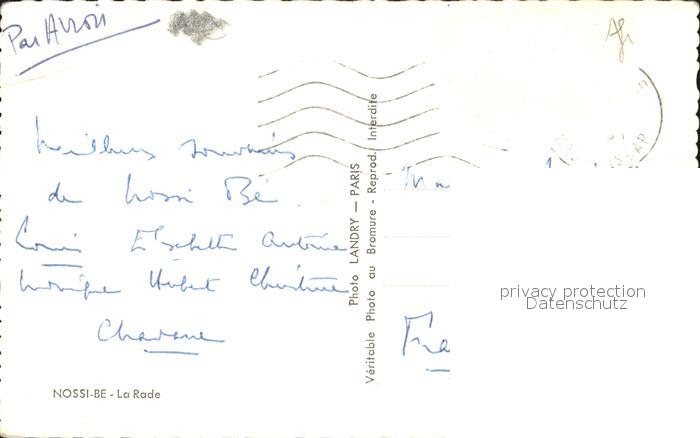 Par Avion
Meilleurs souvenirs
de Nossi Bé.
Louis Elisabeth Antoine
Monique Hubert Christine
Chavane
NOSSI-BE - La Rade
Photo LANDRY — PARIS
Véritable Photo au Bromure - Reprod. Interdite
privacy protection
Datenschutz